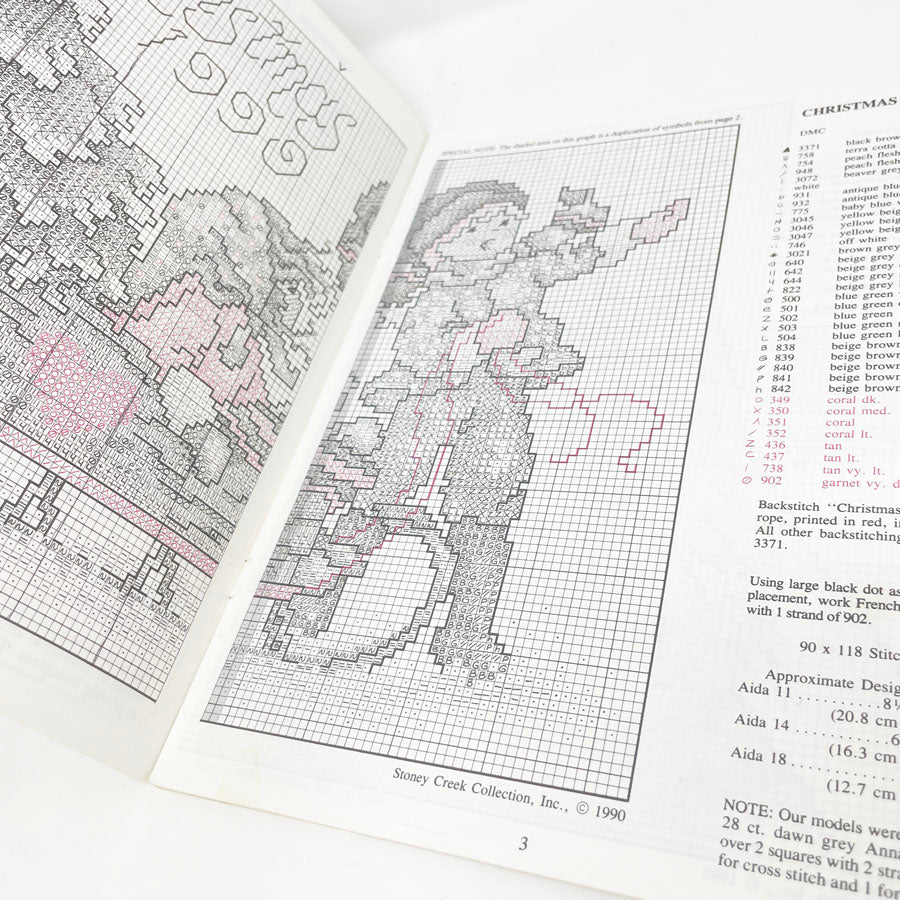 SPECIAL NOTE: The shaded area on this graph is a duplication of symbols from page 2.
Stoney Creek Collection, Inc., © 1990
3
CHRISTMAS
DMC
3371 black brow
758 terra cotta
754 peach flesh
948 peach flesh
3072 beaver grey
white
931 antique blu
932 antique blu
775 baby blue v
3045 yellow beig
3046 yellow beig
3047 yellow beig
746 off white
3021 brown grey
640 beige grey
642 beige grey
644 beige grey
822 beige grey
500 blue green
501 blue green
502 blue green
503 blue green
504 blue green
838 beige brown
839 beige brown
840 beige brown
841 beige brown
842 beige brown
349 coral dk.
350 coral med.
351 coral
352 coral lt.
436 tan
437 tan lt.
738 tan vy. lt.
902 garnet vy. d
Backstitch "Christmas
rope, printed in red, i
All other backstitching
3371.
Using large black dot as
placement, work French
with 1 strand of 902.
90 x 118 Stitc
Approximate Desig
Aida 11 . . . . . . . . . . 8½
(20.8 cm
Aida 14 . . . . . . . . . . . 6
(16.3 cm
Aida 18 . . . . . . . . . . .
(12.7 cm
NOTE: Our models were
28 ct. dawn grey Anna
over 2 squares with 2 stra
for cross stitch and 1 for